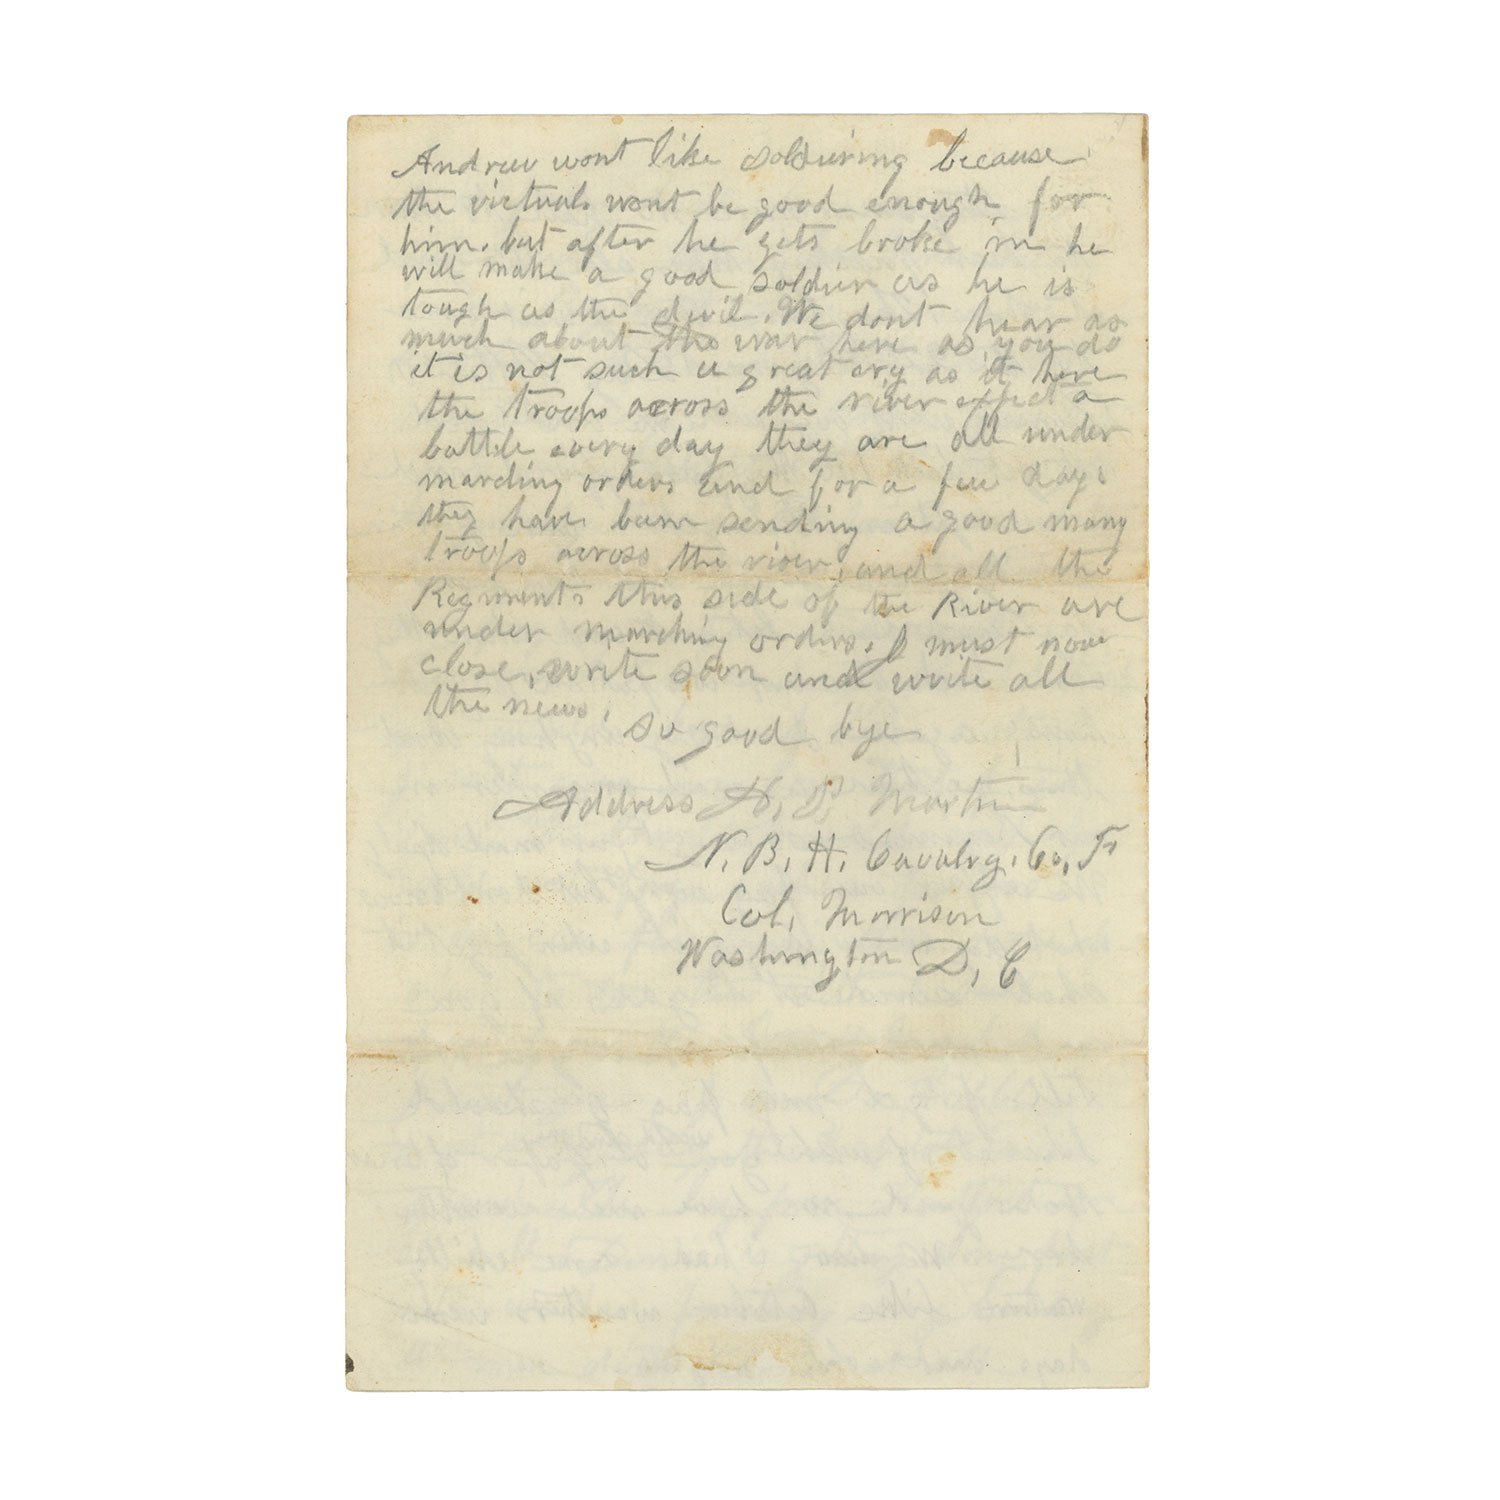 Andrew wont like soldiering because
the victuals wont be good enough for
him. but after he gets broke in he
will make a good soldier as he is
tough as the devil. We dont hear as
much about the war here as you do
it is not such a great cry as it here
the troops across the river expect a
battle every day they are all under
marching orders and for a few days
they have been sending a good many
troops across the river, and all the
Regiments this side of the River are
under marching orders. I must now
close, write soon and write all
the news.
So good bye
Address H. P. Martin
N. B. H. Cavalry, Co, F
Col, Morrison
Washington D, C